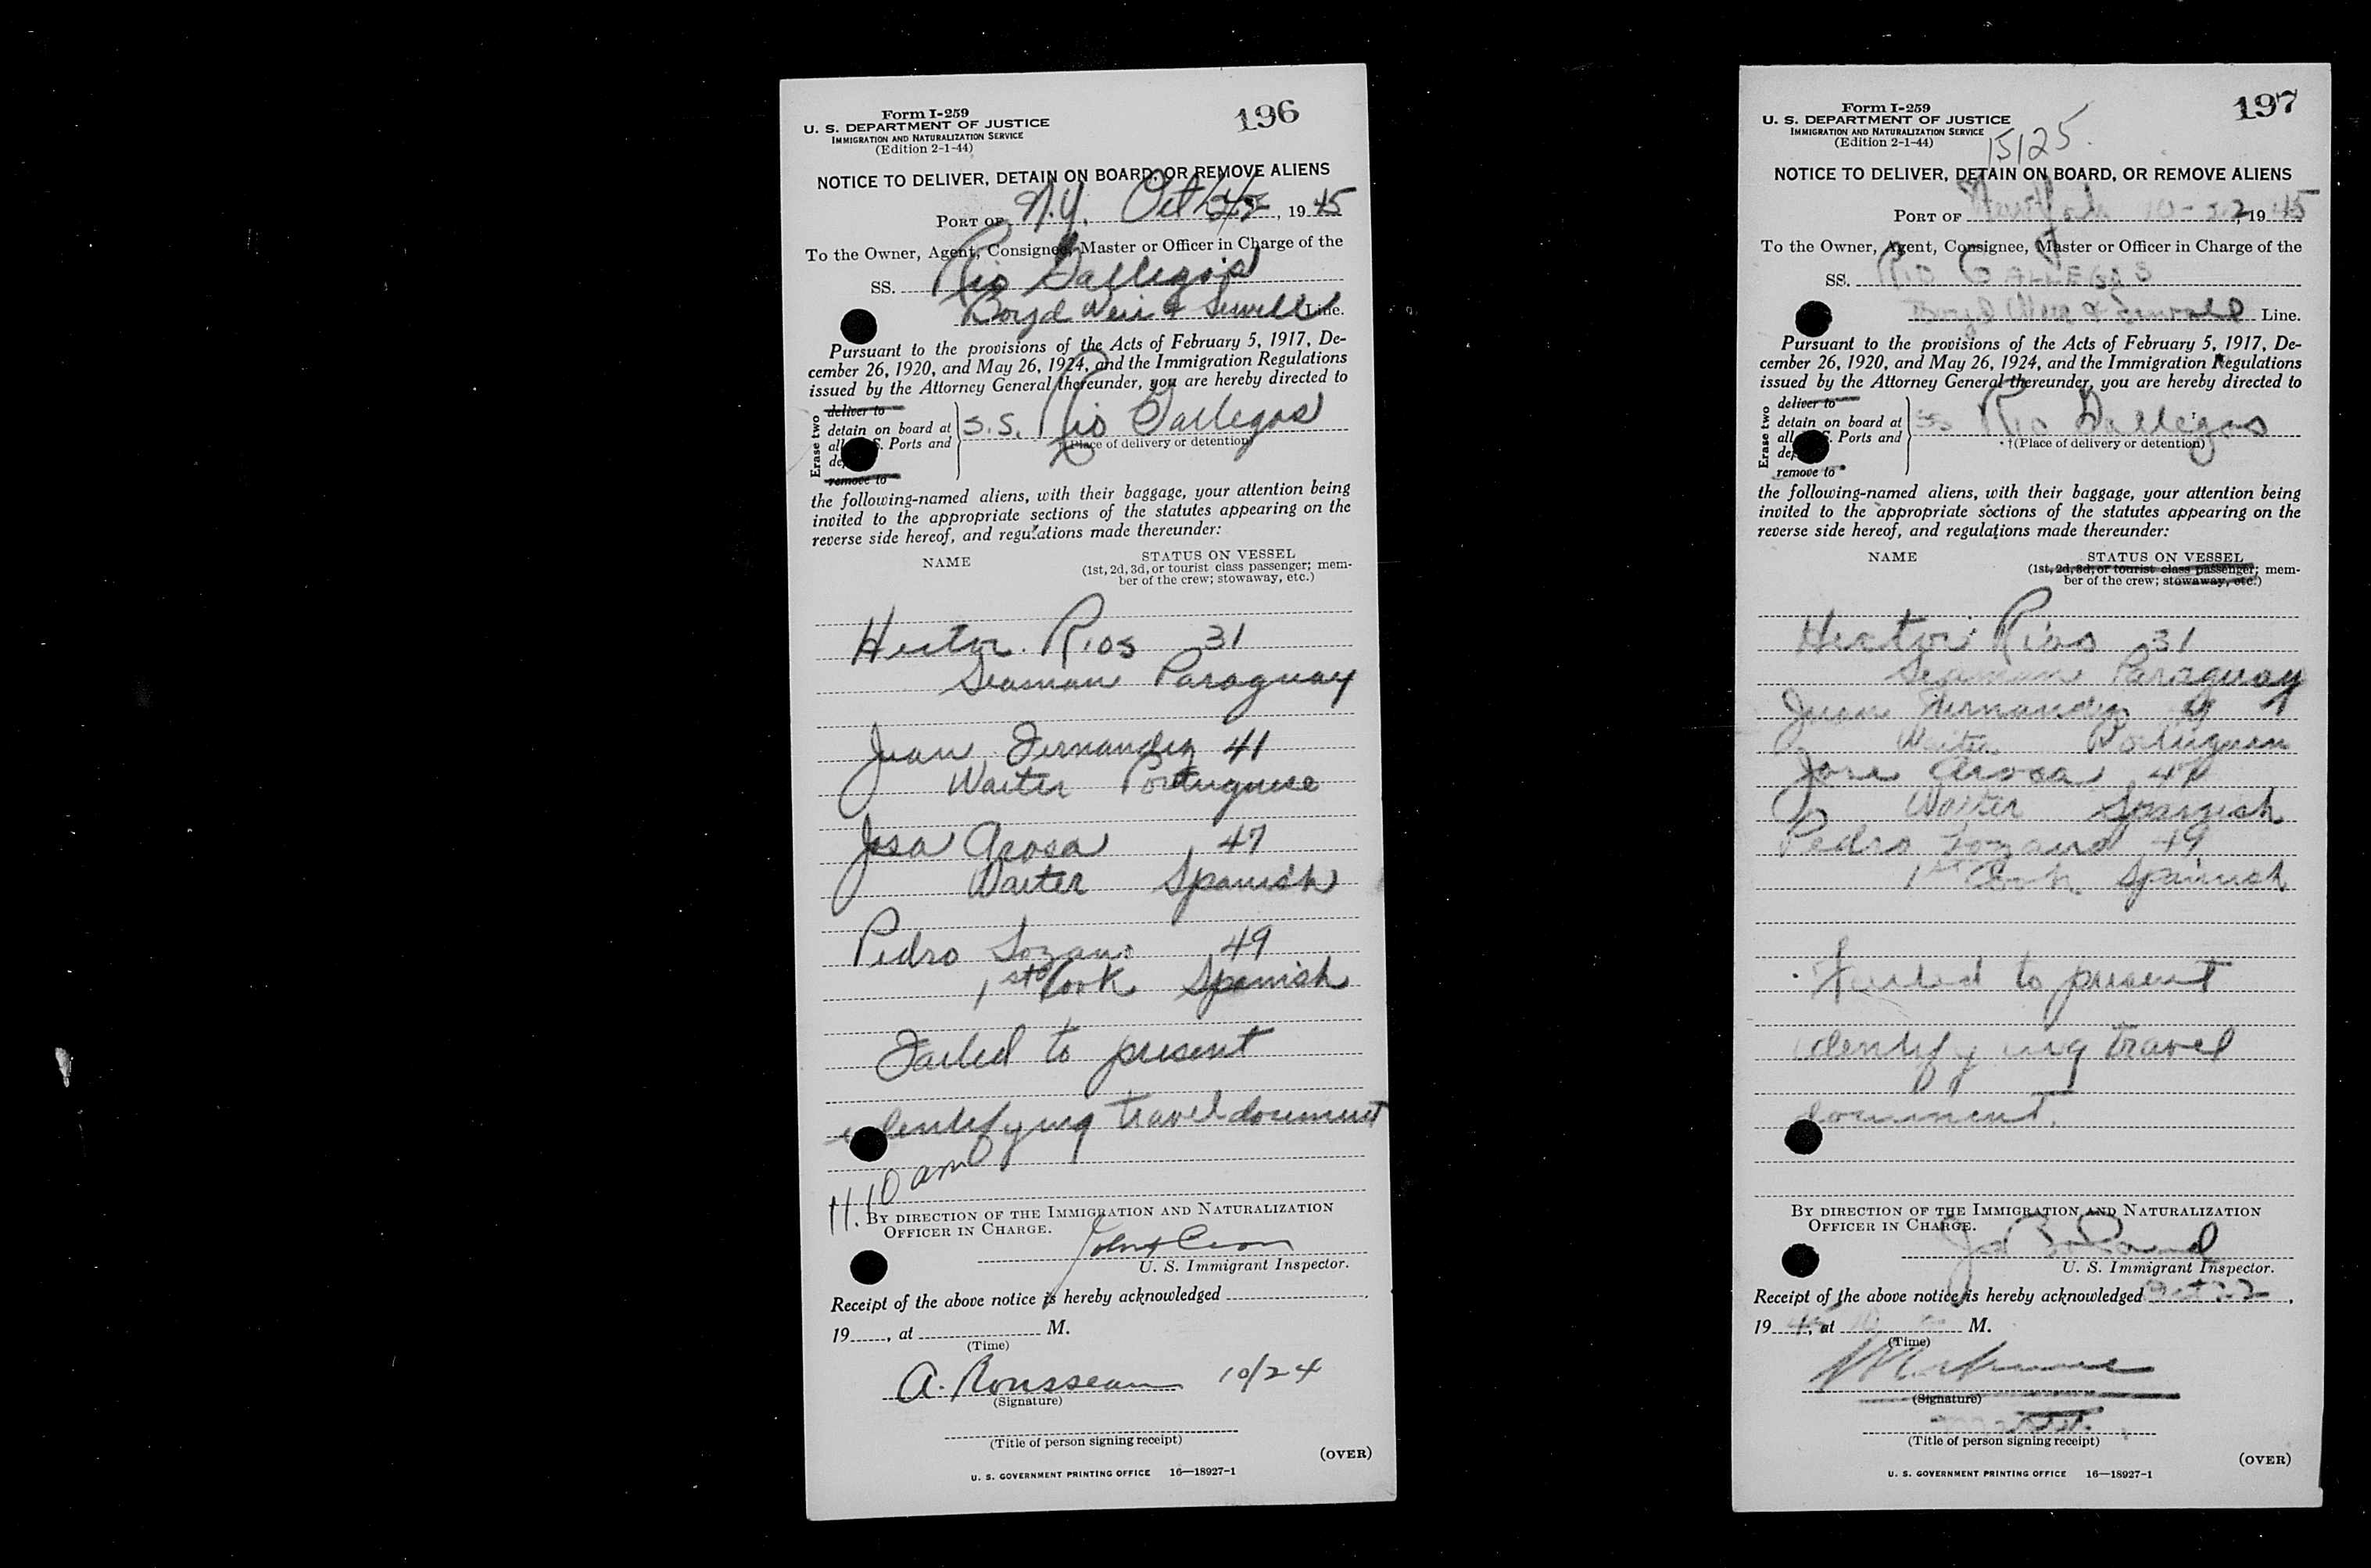 Form I-259
196
U. S. DEPARTMENT OF JUSTICE
IMMIGRATION AND NATURALIZATION SERVICE
(Edition 2-1-44)
NOTICE TO DELIVER, DETAIN ON BOARD, OR REMOVE ALIENS
PORT OF N.Y. Oct , 19 45
To the Owner, Agent, Consignee, Master or Officer in Charge of the
SS. Rio Gallegos
Boyd Weir & Sewell Line.
Pursuant to the provisions of the Acts of February 5, 1917, De-
cember 26, 1920, and May 26, 1924, and the Immigration Regulations
issued by the Attorney General thereunder, you are hereby directed to
Erase two
deliver to
detain on board at
all . Ports and
remove to
S.S. Rio Gallegos
†(Place of delivery or detention)
the following-named aliens, with their baggage, your attention being
invited to the appropriate sections of the statutes appearing on the
reverse side hereof, and regulations made thereunder:
NAME
STATUS ON VESSEL
(1st, 2d, 3d, or tourist class passenger; mem-
ber of the crew; stowaway, etc.)
Hector Rios 31
Seaman Paraguay
Juan Fernandez 41
Waiter Portuguese
Josa Arosa 47
Waiter Spanish
Pedro Lozano 49
1st Cook Spanish
Failed to present
identifying travel document
11.10 am
BY DIRECTION OF THE IMMIGRATION AND NATURALIZATION
OFFICER IN CHARGE.
U. S. Immigrant Inspector.
Receipt of the above notice is hereby acknowledged
19 , at M.
(Time)
A. Rousseau 10/24
(Signature)
(Title of person signing receipt)
(OVER)
U. S. GOVERNMENT PRINTING OFFICE 16—18927-1
Form I-259
197
U. S. DEPARTMENT OF JUSTICE
IMMIGRATION AND NATURALIZATION SERVICE
(Edition 2-1-44)
15125.
NOTICE TO DELIVER, DETAIN ON BOARD, OR REMOVE ALIENS
PORT OF New York 10-22, 19 45
To the Owner, Agent, Consignee, Master or Officer in Charge of the
SS. RIO GALLEGOS
Boyd Weir & Sewell Line.
Pursuant to the provisions of the Acts of February 5, 1917, De-
cember 26, 1920, and May 26, 1924, and the Immigration Regulations
issued by the Attorney General thereunder, you are hereby directed to
Erase two
deliver to
detain on board at
all . Ports and
remove to
SS Rio Gallegos
†(Place of delivery or detention)
the following-named aliens, with their baggage, your attention being
invited to the appropriate sections of the statutes appearing on the
reverse side hereof, and regulations made thereunder:
NAME
STATUS ON VESSEL
(1st, 2d, 3d, or tourist class passenger; mem-
ber of the crew; stowaway, etc.)
Hector Rios 31
Seaman Paraguay
Juan Fernandez
Waiter Portuguese
Jose Arosa 47
Waiter Spanish
Pedro Lozano 49
1st Cook Spanish
Failed to present
identifying travel
document.
BY DIRECTION OF THE IMMIGRATION AND NATURALIZATION
OFFICER IN CHARGE.
U. S. Immigrant Inspector.
Receipt of the above notice is hereby acknowledged Oct 22,
19 45, at 10 M.
(Time)
(Signature)
(Title of person signing receipt)
(OVER)
U. S. GOVERNMENT PRINTING OFFICE 16—18927-1